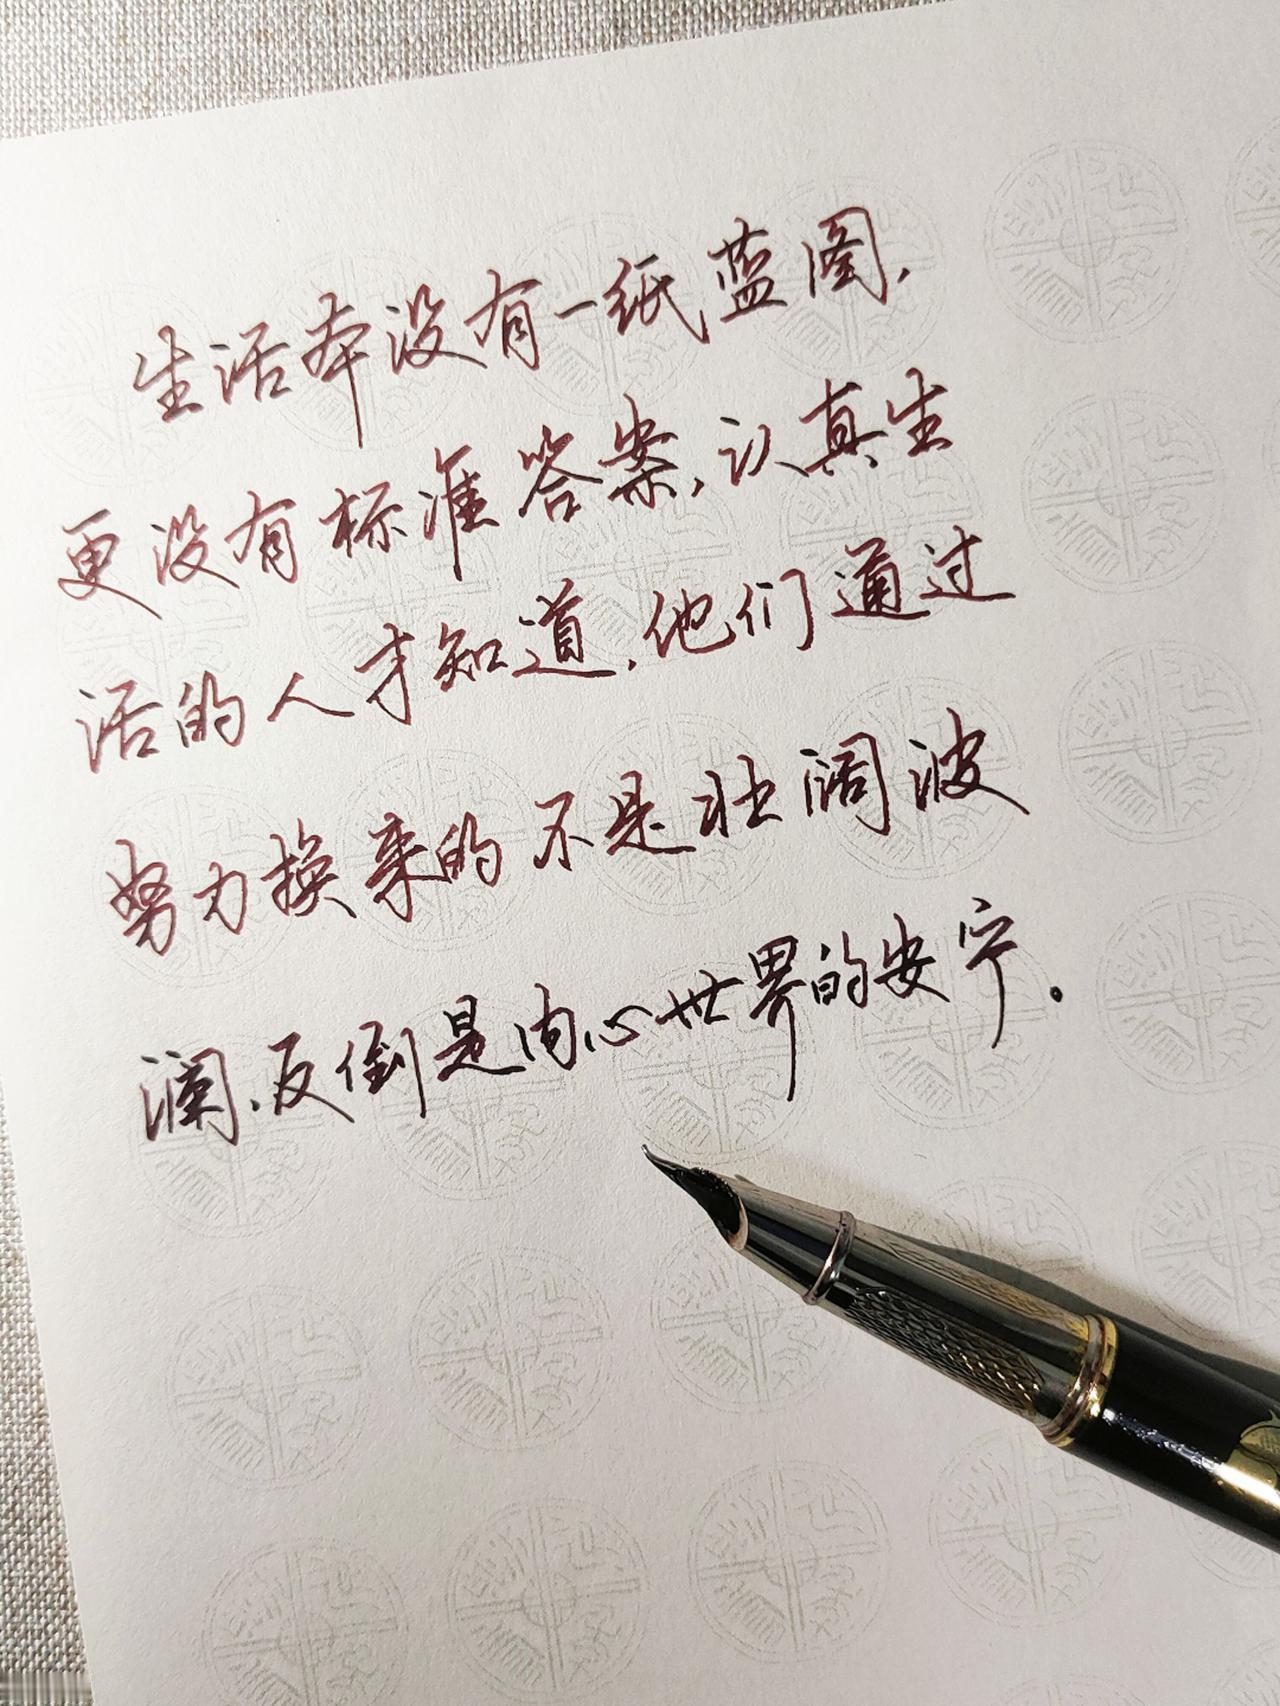 生活本没有一纸蓝图，
更没有标准答案，认真生
活的人才知道，他们通过
努力换来的不是壮阔波
澜，反倒是内心世界的安宁。